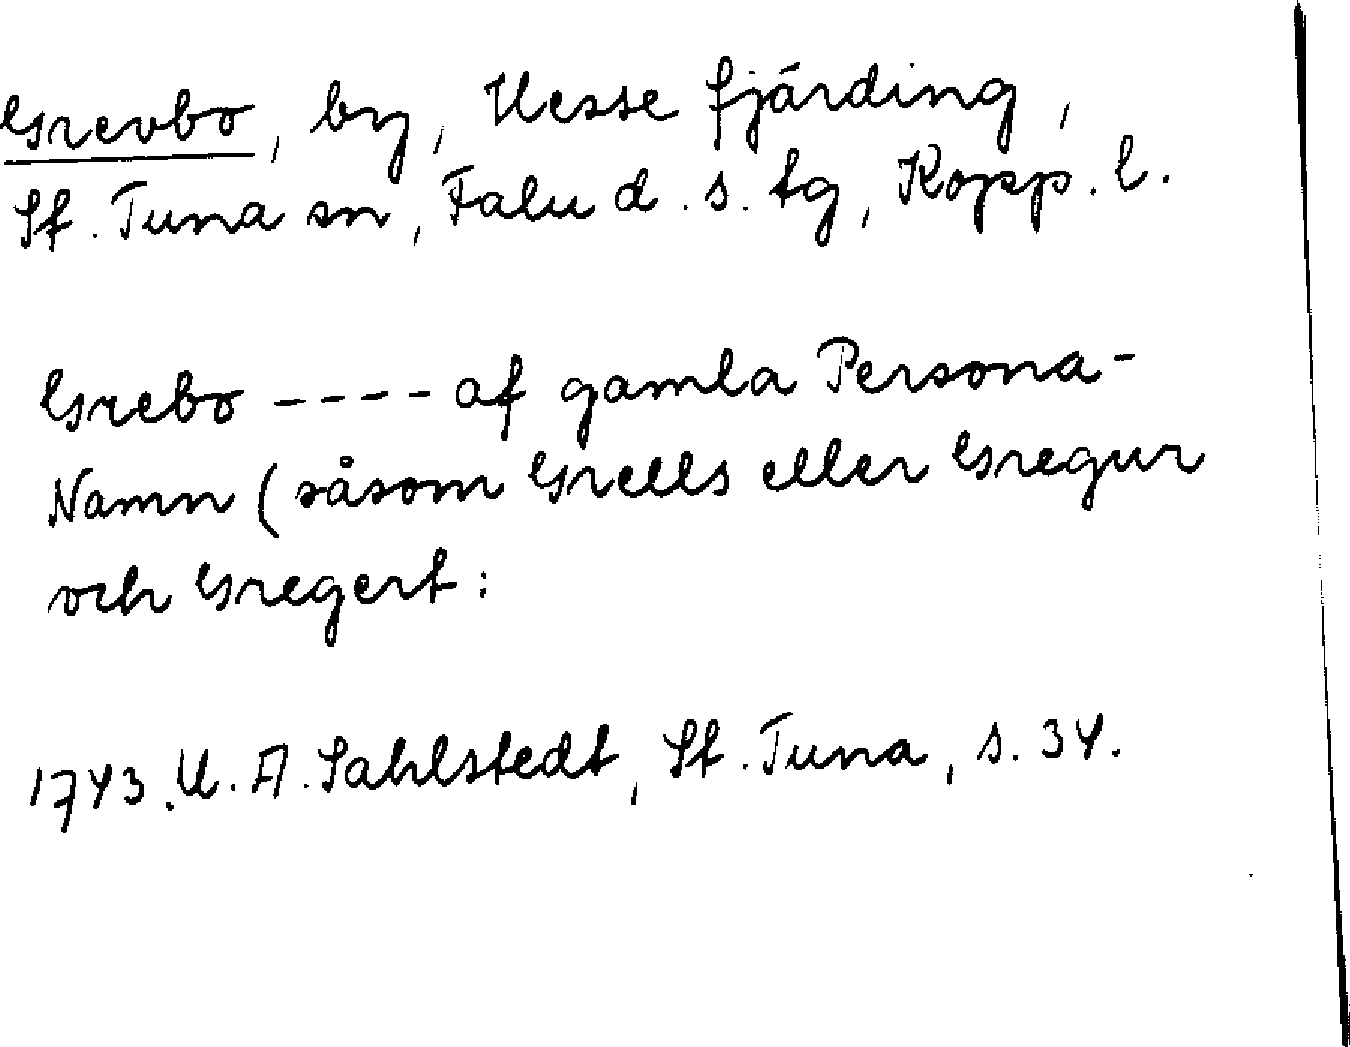 Grevbo, by, Uesse fjärding,
St. Tuna sn, Falu d. s. tg, Kopp. l.
Grebo ---- af gamla Persona-
Namn (såsom Grells eller Gregur
och Gregert:
1743. U. A. Sahlstedt, St. Tuna, s. 34.